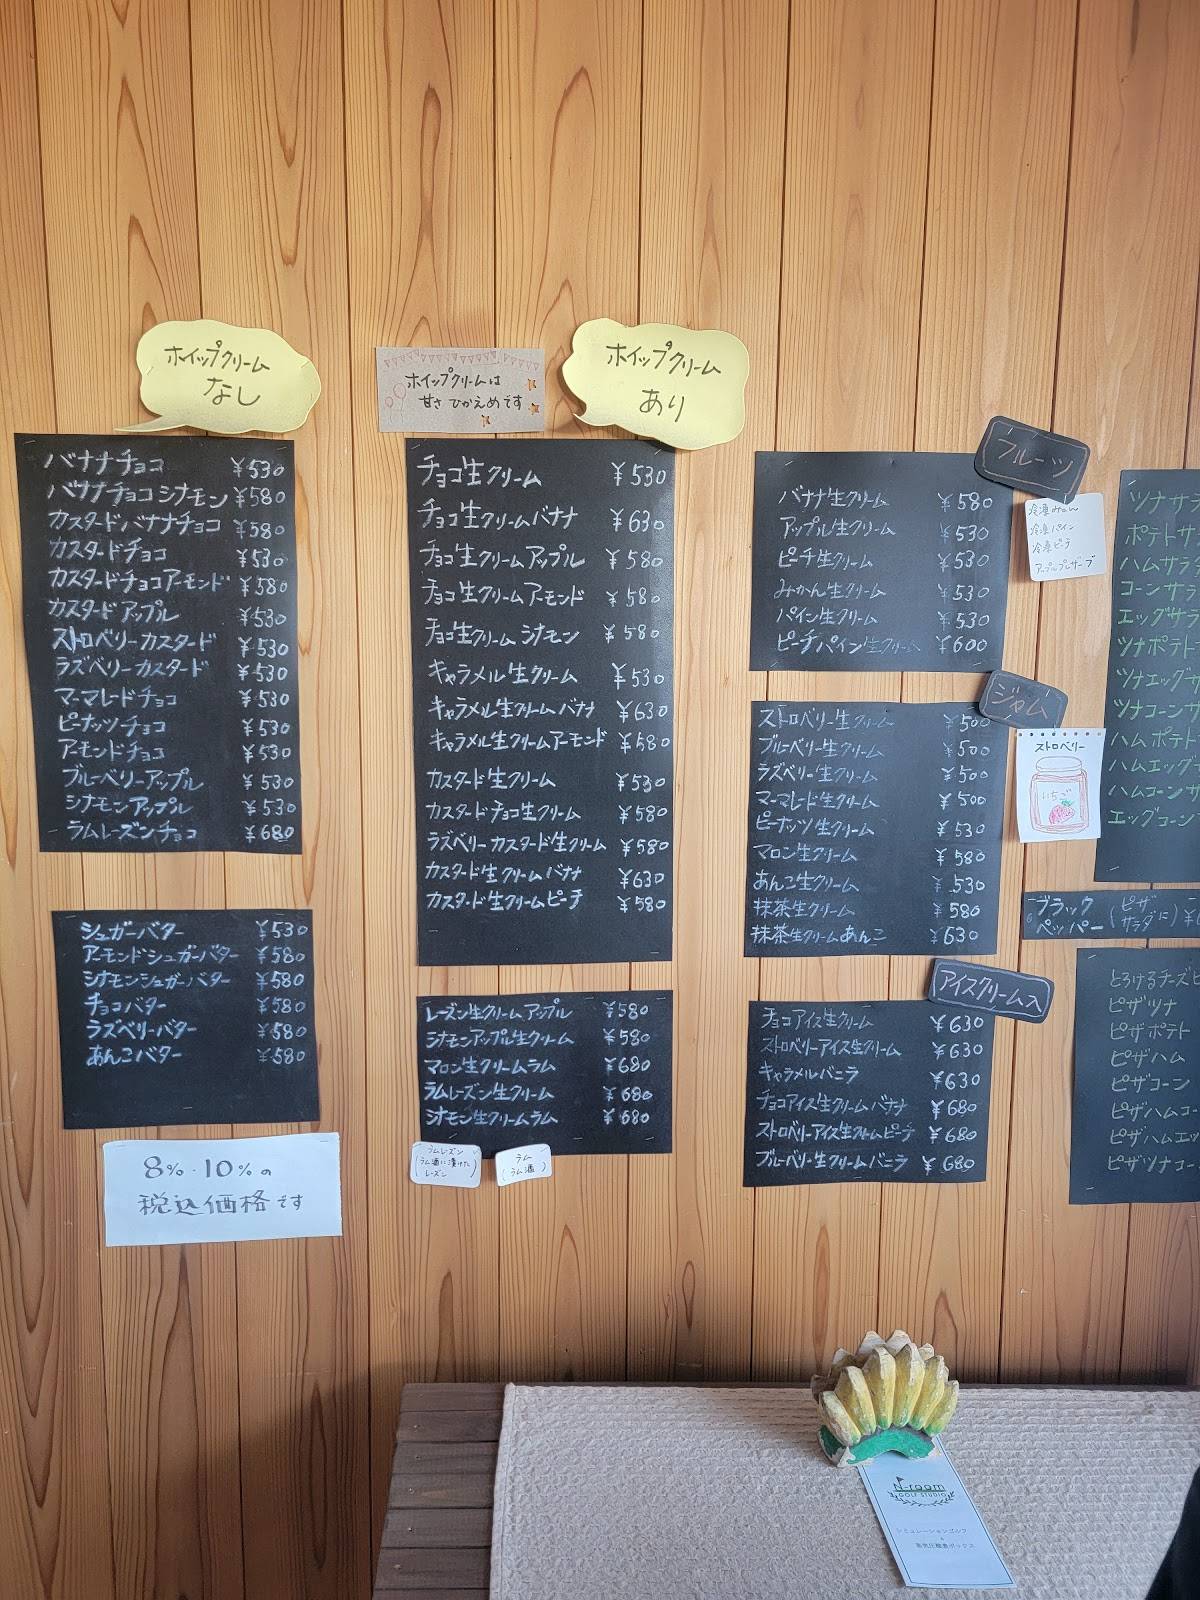 ホイップクリーム
なし
バナナチョコ ¥530
バナナチョコシナモン ¥580
カスタードバナナチョコ ¥580
カスタードチョコ ¥530
カスタードチョコアーモンド ¥580
カスタードアップル ¥530
ストロベリーカスタード ¥530
ラズベリーカスタード ¥530
マーマレードチョコ ¥530
ピーナッツチョコ ¥530
アーモンドチョコ ¥530
ブルーベリーアップル ¥530
シナモンアップル ¥530
ラムレーズンチョコ ¥680
シュガーバター ¥530
アーモンドシュガーバター ¥580
シナモンシュガーバター ¥580
チョコバター ¥580
ラズベリーバター ¥580
あんこバター ¥580
8%・10%の
税込価格です
ホイップクリームは
甘さひかえめです
ホイップクリーム
あり
チョコ生クリーム ¥530
チョコ生クリームバナナ ¥630
チョコ生クリームアップル ¥580
チョコ生クリームアーモンド ¥580
チョコ生クリームシナモン ¥580
キャラメル生クリーム ¥530
キャラメル生クリームバナナ ¥630
キャラメル生クリームアーモンド ¥580
カスタード生クリーム ¥530
カスタードチョコ生クリーム ¥580
ラズベリーカスタード生クリーム ¥580
カスタード生クリームバナナ ¥630
カスタード生クリームピーチ ¥580
レーズン生クリームアップル ¥580
シナモンアップル生クリーム ¥580
マロン生クリームラム ¥680
ラムレーズン生クリーム ¥680
シナモン生クリームラム ¥680
ラムレーズン
(ラム酒に漬けた
レーズン)
ラム
(ラム酒)
フルーツ
冷凍みかん
冷凍パイン
冷凍ピーチ
アップルプレザーブ
バナナ生クリーム ¥580
アップル生クリーム ¥530
ピーチ生クリーム ¥530
みかん生クリーム ¥530
パイン生クリーム ¥530
ピーチパイン生クリーム ¥600
ジャム
ストロベリー
いちご
ストロベリー生クリーム ¥500
ブルーベリー生クリーム ¥500
ラズベリー生クリーム ¥500
マーマレード生クリーム ¥500
ピーナッツ生クリーム ¥530
マロン生クリーム ¥580
あんこ生クリーム ¥530
抹茶生クリーム ¥580
抹茶生クリームあんこ ¥630
アイスクリーム入
チョコアイス生クリーム ¥630
ストロベリーアイス生クリーム ¥630
キャラメルバニラ ¥630
チョコアイス生クリームバナナ ¥680
ストロベリーアイス生クリームピーチ ¥680
ブルーベリー生クリームバニラ ¥680
ツナサラ
ポテトサ
ハムサラダ
コーンサラ
エッグサラ
ツナポテト
ツナエッグサ
ツナコーンサ
ハムポテト
ハムエッグ
ハムコーンサ
エッグコーン
ブラック
ペッパー
(ピザ
サラダに) ¥
とろけるチーズピ
ピザツナ
ピザポテト
ピザハム
ピザコーン
ピザハムコー
ピザハムエッ
ピザツナコー
N-room
GOLF STUDIO
シミュレーションゴルフ
&
高気圧酸素ボックス